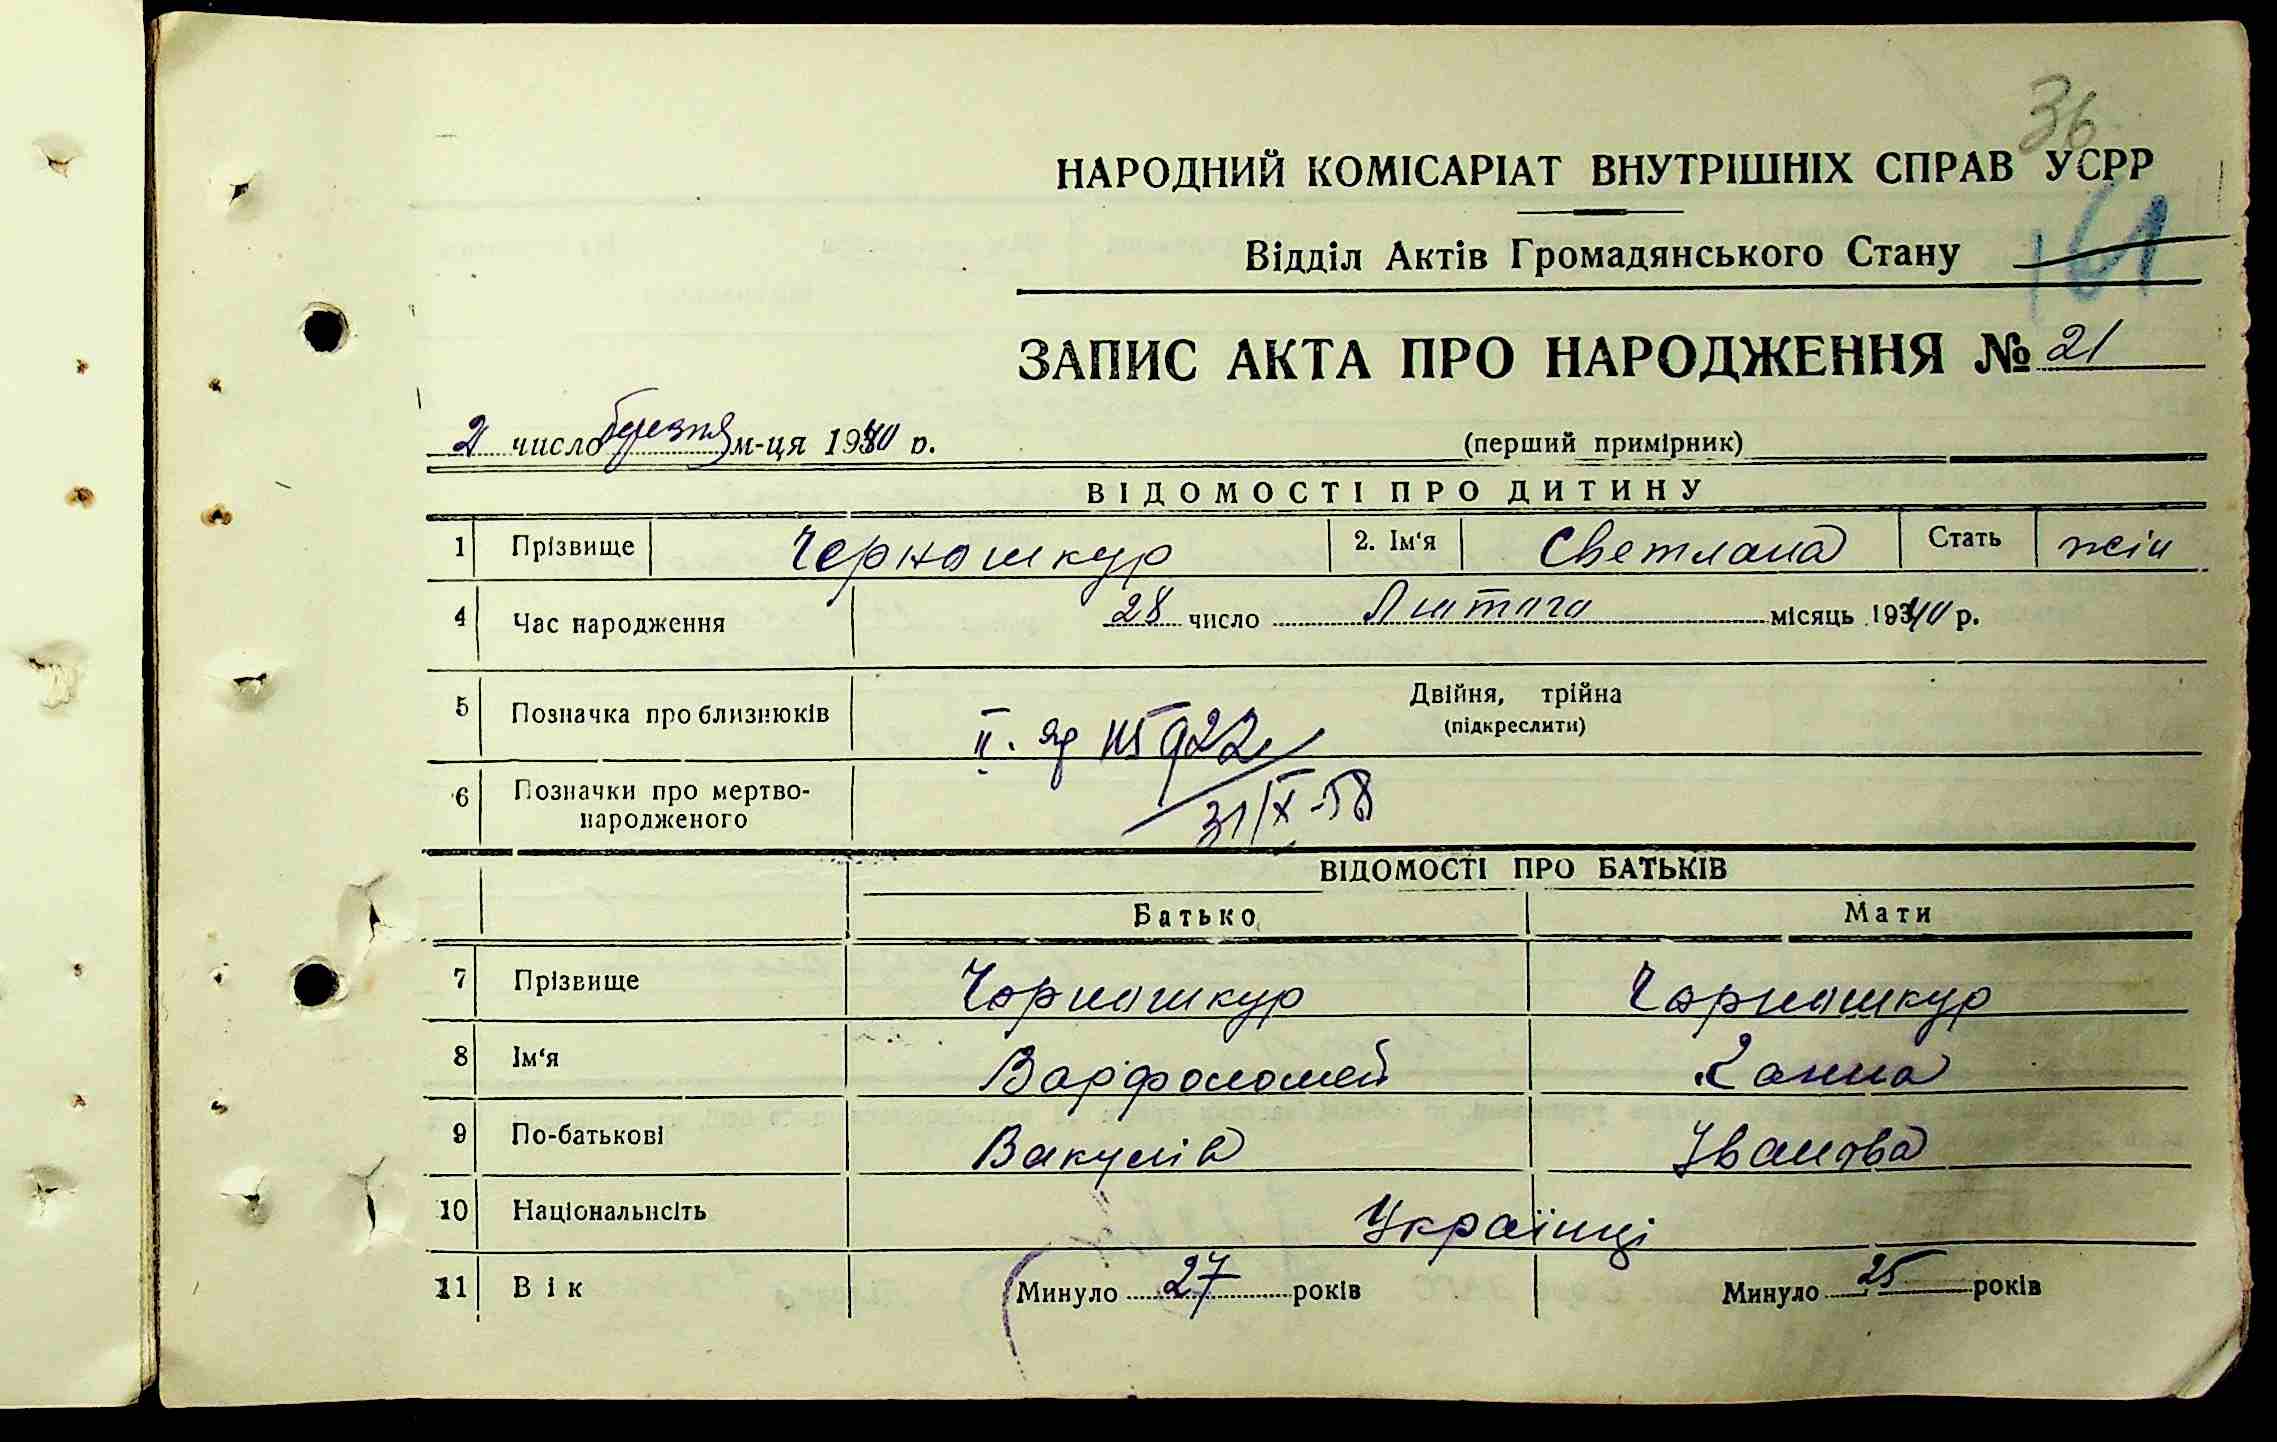 36
НАРОДНИЙ КОМІСАРІАТ ВНУТРІШНІХ СПРАВ УСРР
161
Відділ Актів Громадянського Стану
ЗАПИС АКТА ПРО НАРОДЖЕННЯ № 21
2 число березня м-ця 1940 р. (перший примірник)
ВІДОМОСТІ ПРО ДИТИНУ
1 Прізвище Чернашкур 2. Ім‘я Светлана Стать жін
4 Час народження 28 число Лютого місяць 1940 р.
5 Позначка про близнюків Двійня, трійна
(підкреслити)
II. яр № 922
6 Позначки про мертво-
народженого 31/X-58
ВІДОМОСТІ ПРО БАТЬКІВ
Батько Мати
7 Прізвище Чорнашкур Чорнашкур
8 Ім‘я Варфоломей Ганна
9 По-батькові Вакулів Іванова
10 Національнсіть Українці
11 Вік Минуло 27 років Минуло 25 років